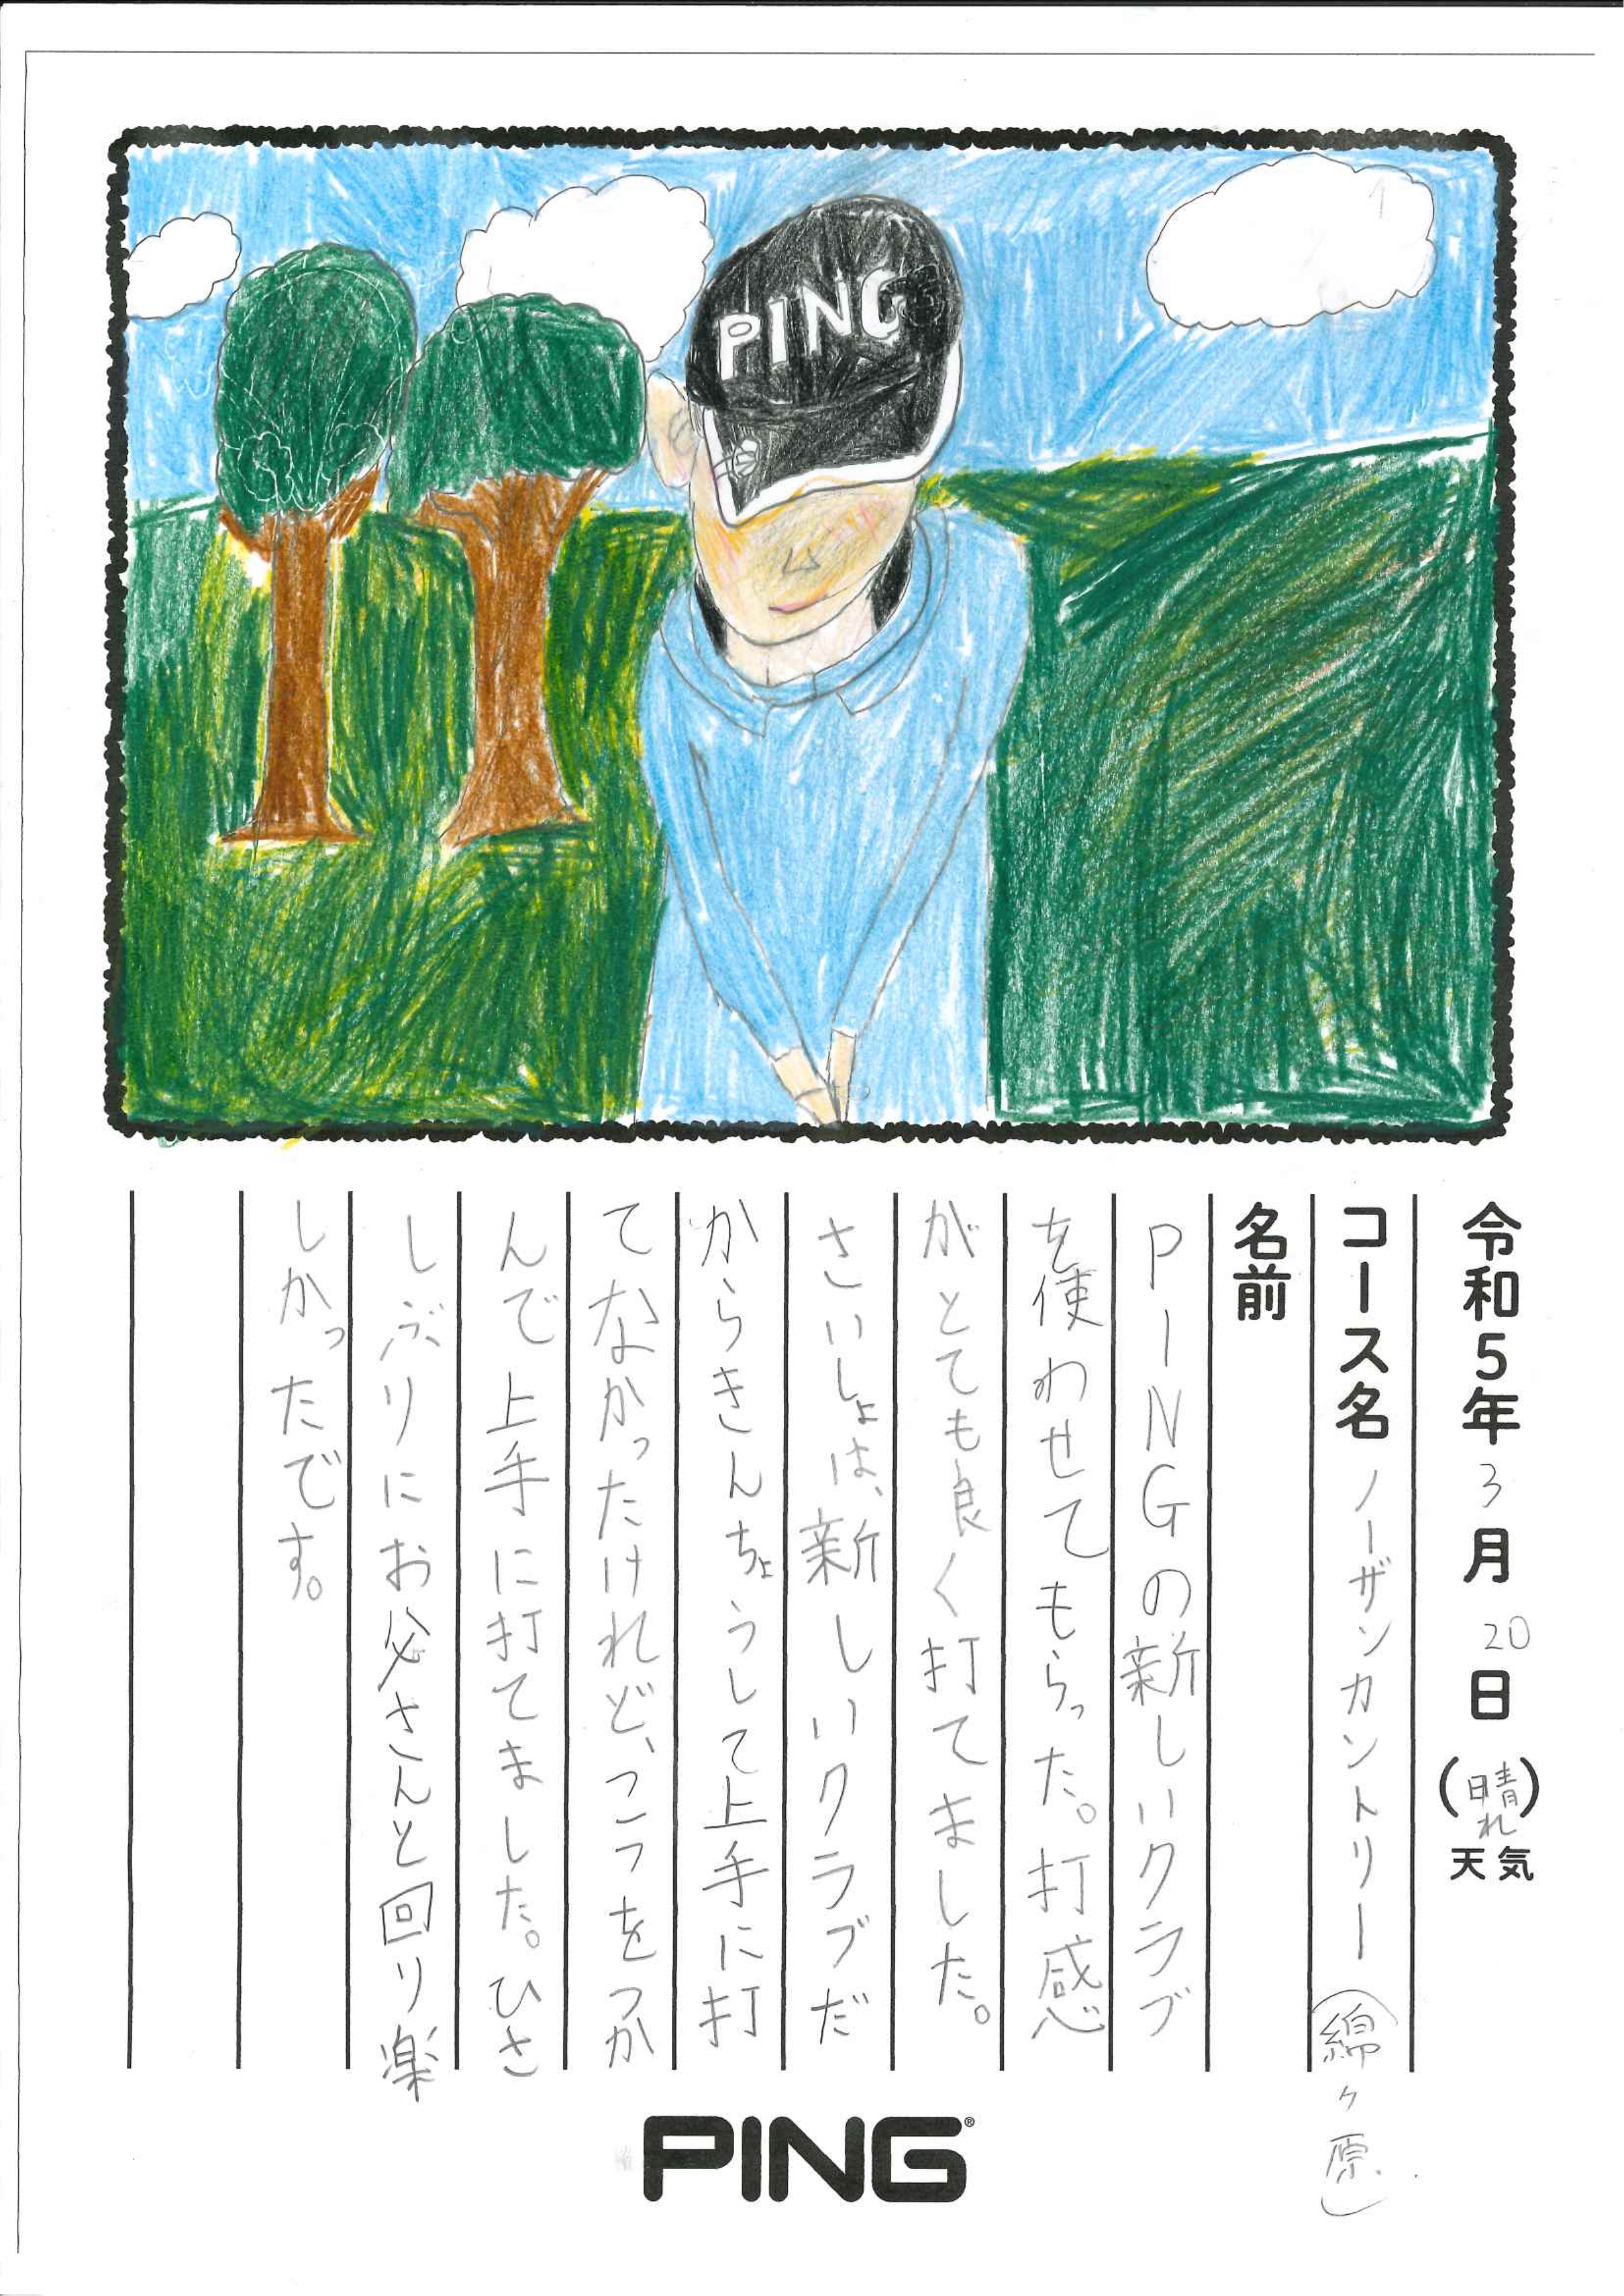 PING
令和5年3月20日(晴れ)天気
コース名 ノーザンカントリー(綿ヶ原)
名前
PINGの新しいクラブ
を使わせてもらった。打感
がとても良く打てました。
さいしょは、新しいクラブだ
からきんちょうして上手に打
てなかったけれど、こつをつか
んで上手に打てました。ひさ
しぶりにお父さんと回り楽
しかったです。
PING®